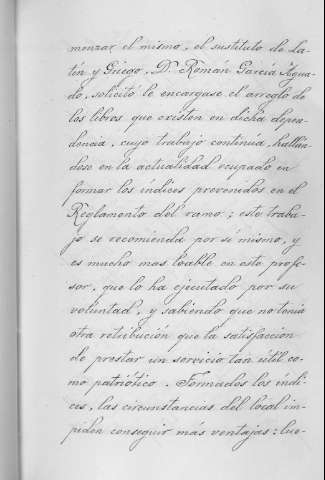 menzar el mismo, el sustituto de La-
tín y Griego, D. Román García Agua-
do, solicitó le encargase el arreglo de
los libros que existen en dicha depen-
dencia, cuyo trabajo continúa, hallán-
dose en la actualidad ocupado en
formar los índices prevenidos en el
Reglamento del ramo; este traba-
jo se recomienda por sí mismo, y
es mucho mas loable en este profe-
sor, que lo ha ejecutado por su
voluntad, y sabiendo que no tenia
otra retribución que la satisfaccion
de prestar un servicio tan útil co-
mo patriótico. Formados los índi-
ces, las circunstancias del local im-
piden conseguir más ventajas: lue-